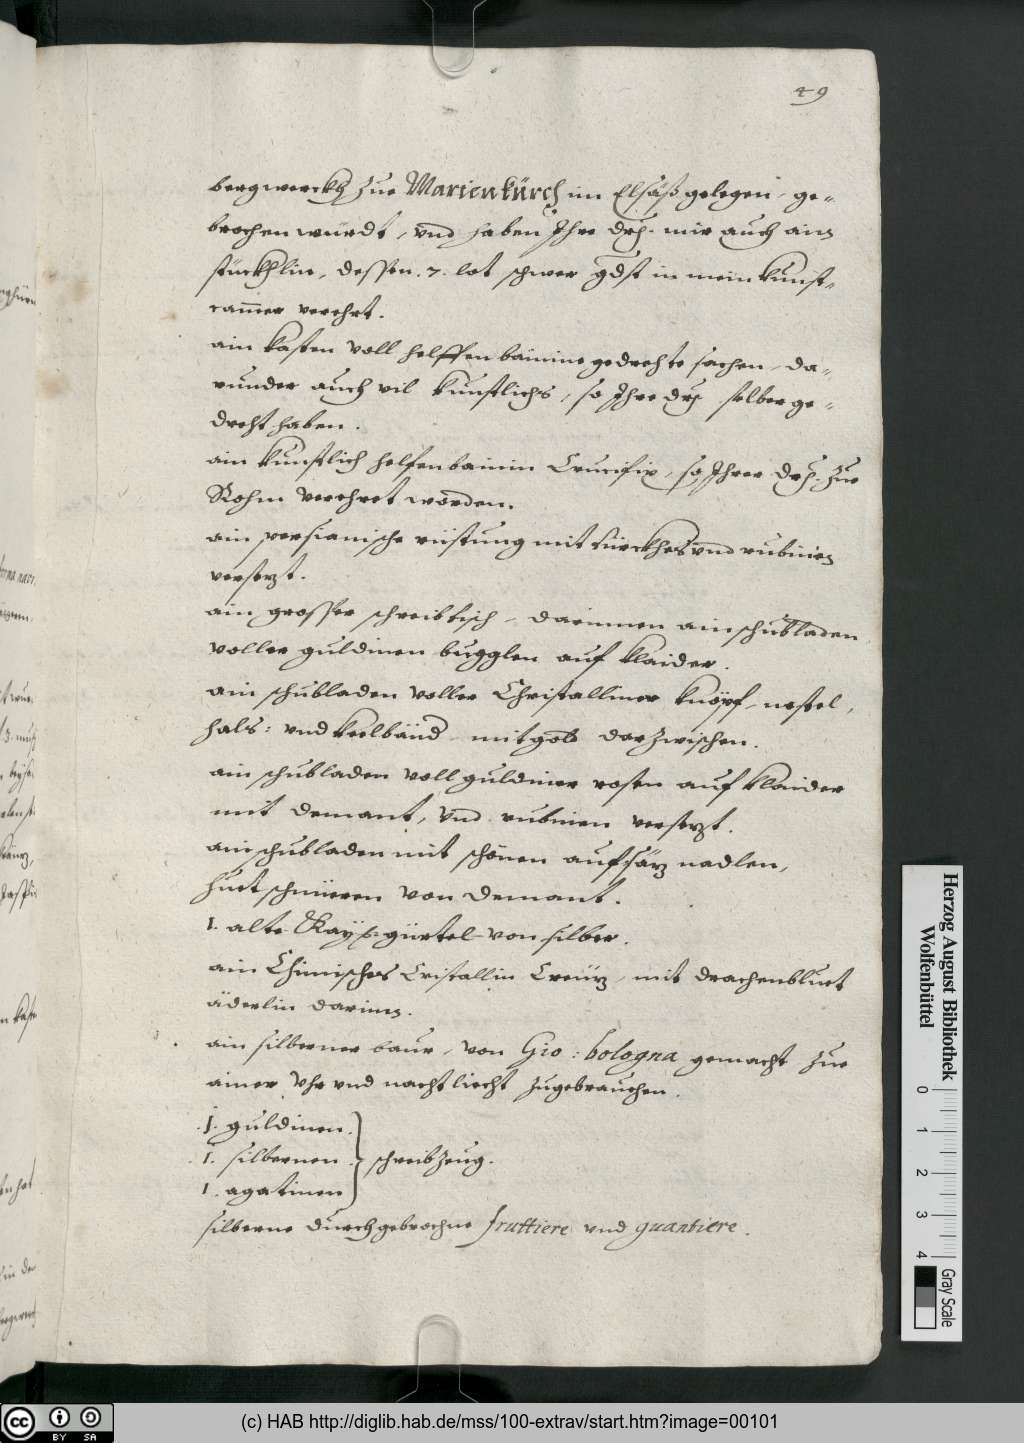 49
bergwerckh zue Marienkürch im Elsäß gelegen, ge-
brochen würdt, vnd haben Ihre Drh. mir auch ain
stückhlin, dessen .7. lot schwer gdst in mein kunst-
camer verehrt.
ain kasten voll helffenbainine gedrehte sachen, da-
runder auch vil kunstlichs, so Ihre Drh selber ge-
dreht haben.
ain kunstlich helfenbainin Crucifix, so Ihrer Drh. zue
Rohm verehret worden.
ain persianische rüstung mit türckhes vnd rubinen
versezt.
ain grosser schreibtisch, darinnen ain schubladen
voller guldinen bugglen auf klaider.
ain schubladen voller Christalliner knöpf, nestel,
hals: vnd keelbänd mit golt darzwischen.
ain schubladen voll guldiner rosen auf klaider
mit demant, vnd rubinen versezt.
ain schubladen mit schönen aufsäz nadlen,
huetschnüeren von demant.
1. alte Kaÿß. gürtel von silber.
ain Chimisches Cristallin Creüz, mit drachenbluet
äderlin darinn.
ain silberner baur, von Gio: bologna gemacht zue
ainer Vhr vnd nachtliecht zugebrauchen.
.1. guldinen.
.1. silbernen. } schreibzeug.
1. agatinen
silberne durchgebrochne fruttiere vnd guantiere.
Herzog August Bibliothek
Wolfenbüttel
0 1 2 3 4
Gray Scale
cc BY SA
(c) HAB http://diglib.hab.de/mss/100-extrav/start.htm?image=00101